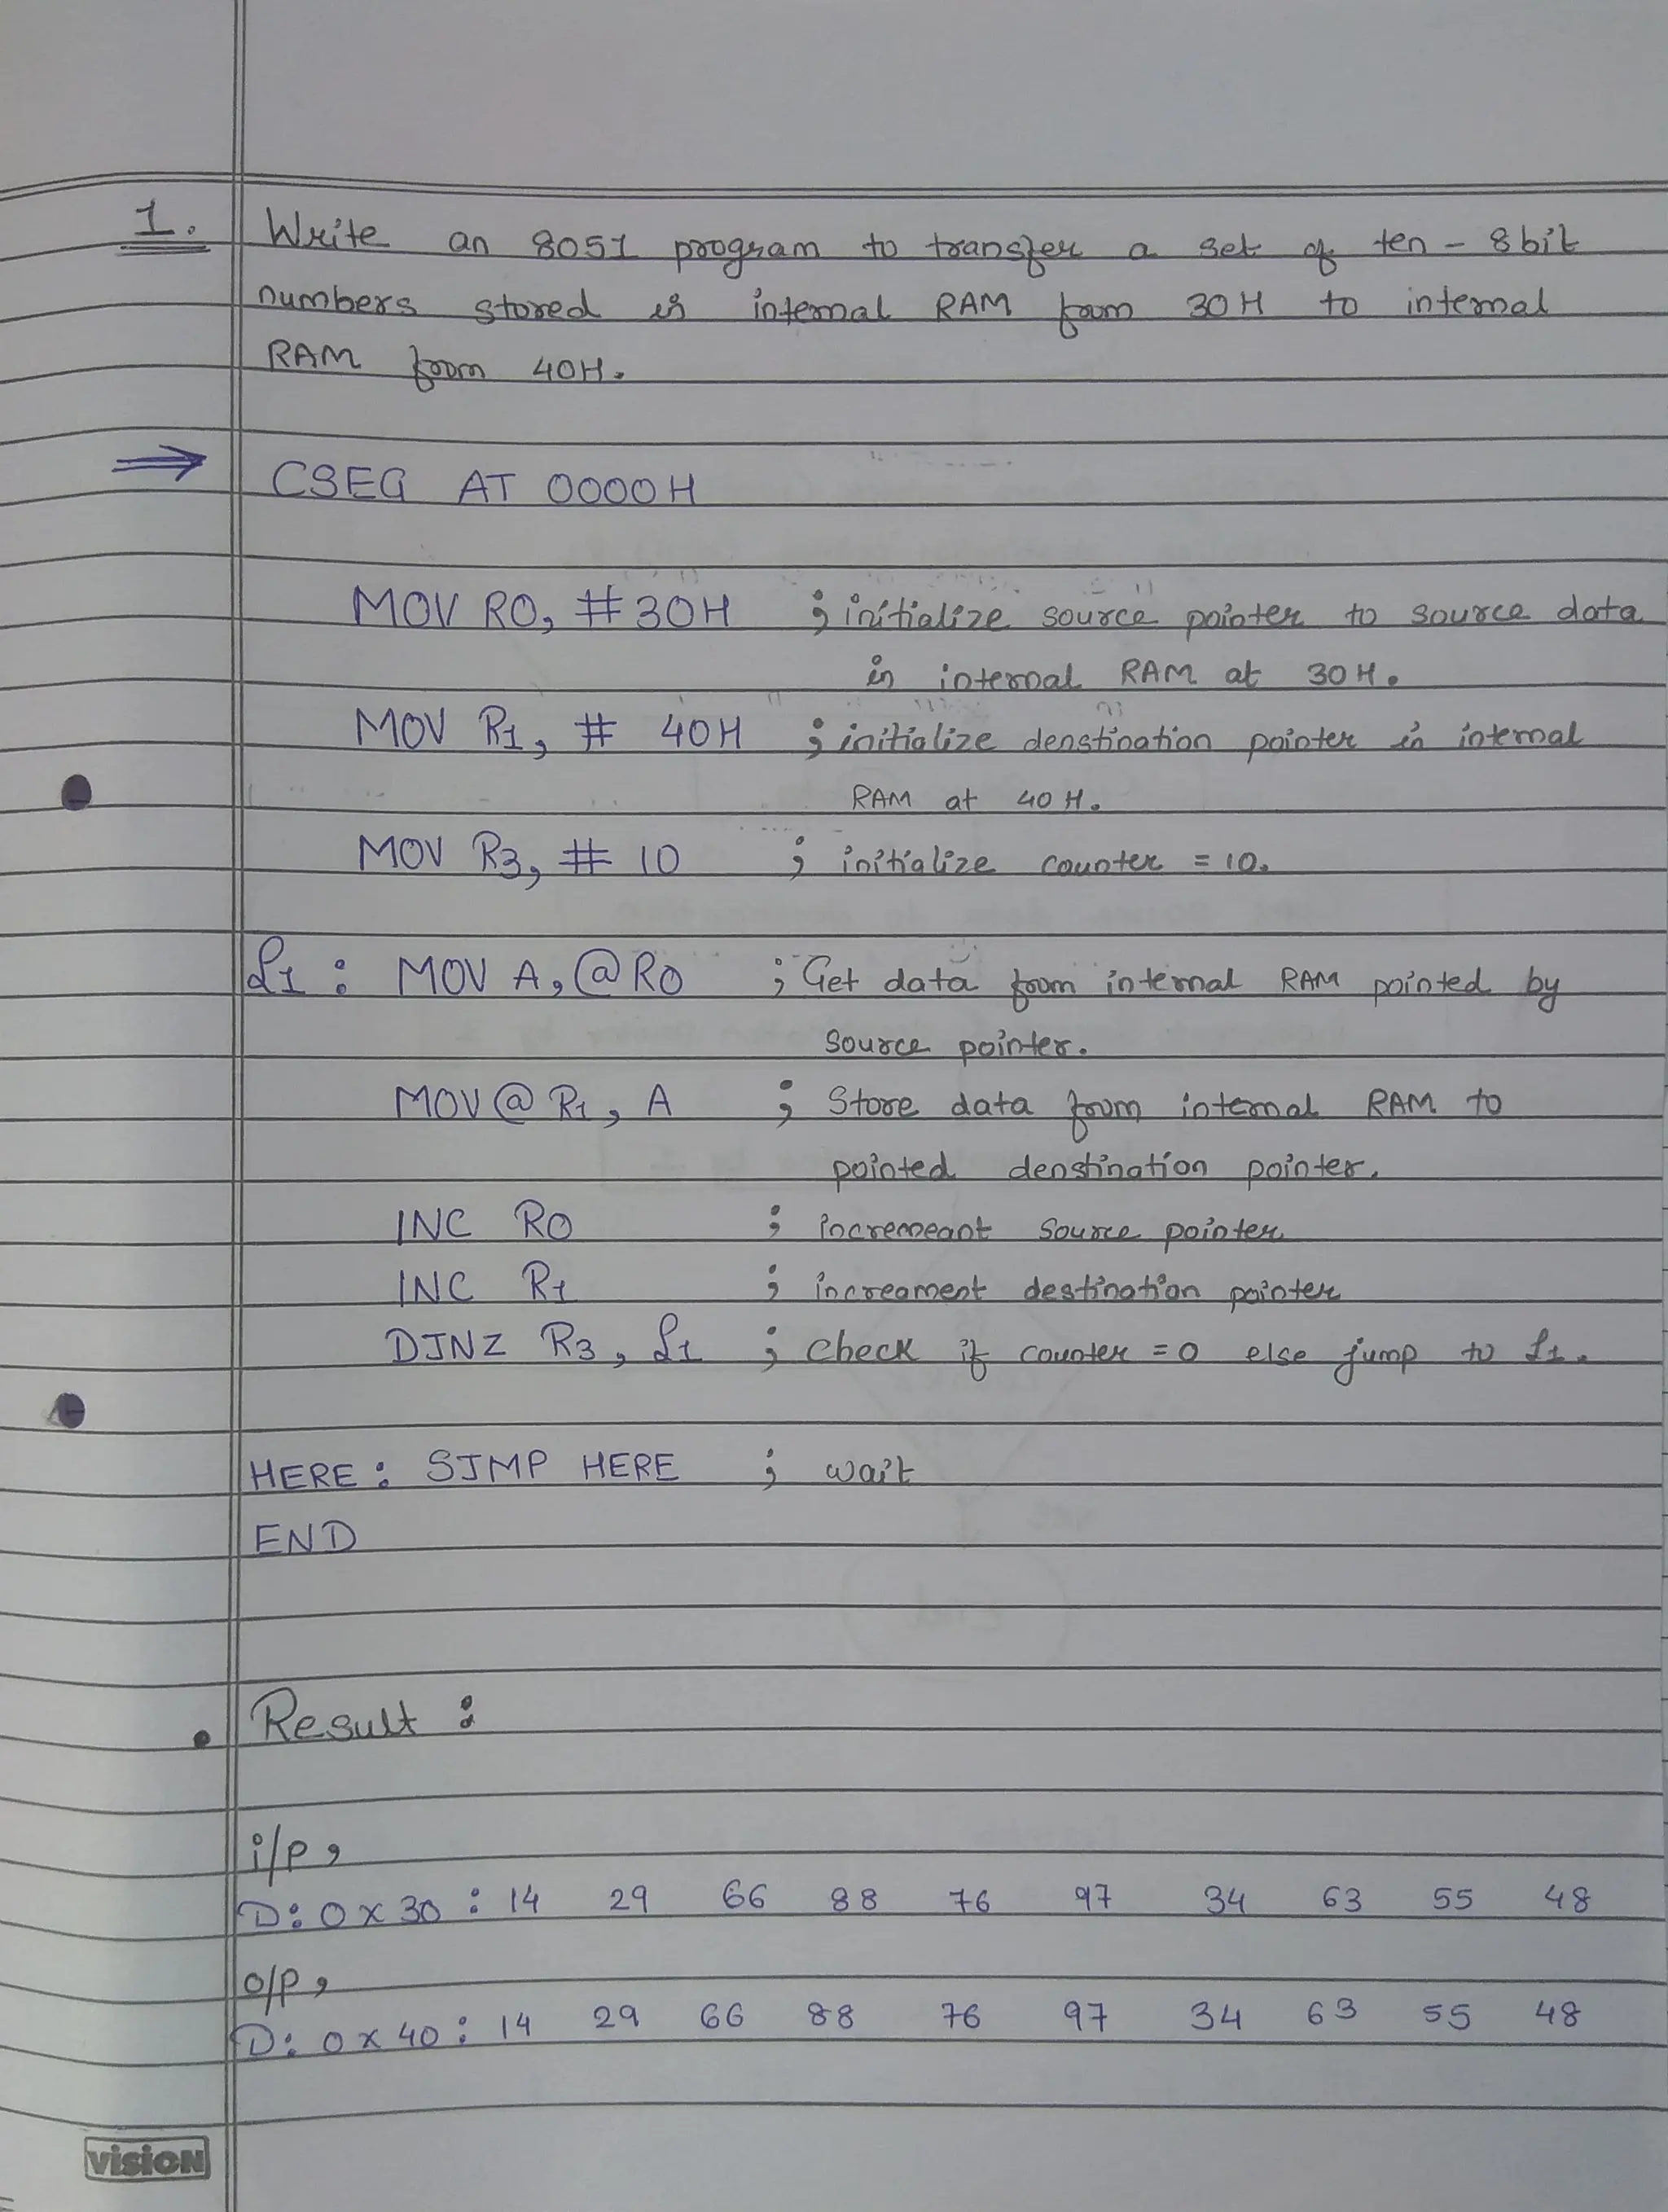 1. Write an 8051 program to transfer a set of ten - 8 bit
numbers stored in internal RAM from 30H to internal
RAM from 40H.
⇒ CSEG AT 0000H
MOV R0, #30H ; initialize source pointer to source data
in internal RAM at 30H.
MOV R1, # 40H ; initialize denstination pointer in internal
RAM at 40H.
MOV R3, # 10 ; initialize counter = 10.
L1 : MOV A, @R0 ; Get data from internal RAM pointed by
source pointer.
MOV @ R1, A ; Store data from internal RAM to
pointed denstination pointer.
INC R0 ; incremeant source pointer
INC R1 ; increament destination pointer
DJNZ R3, L1 ; check if counter = 0 else jump to L1.
HERE : SJMP HERE ; wait
END
. Result :
i/p,
D: 0x30 : 14 29 66 88 76 97 34 63 55 48
o/p,
D: 0x40 : 14 29 66 88 76 97 34 63 55 48
VISION